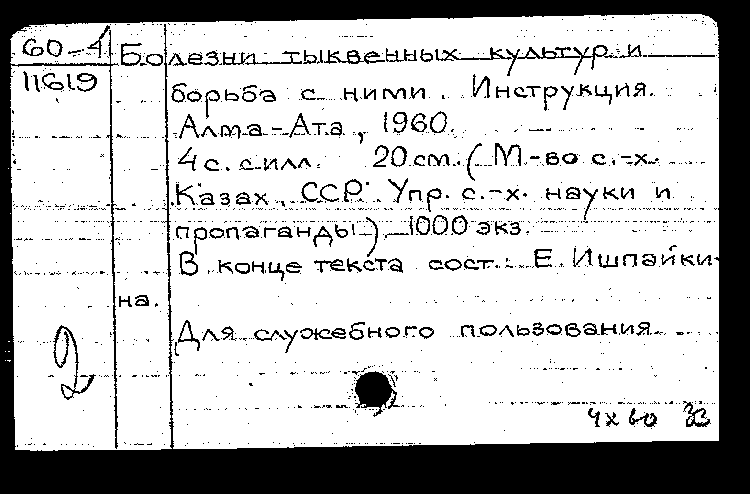 60-4
11619
Болезни тыквенных культур и
борьба с ними. Инструкция.
Алма-Ата, 1960.
4 с. с илл. 20 см. (М-во с.-х.
Казах. ССР. Упр. с.-х. науки и
пропаганды). 1000 экз.
В конце текста сост.: Е. Ишпайки-
на.
Для служебного пользования.
2